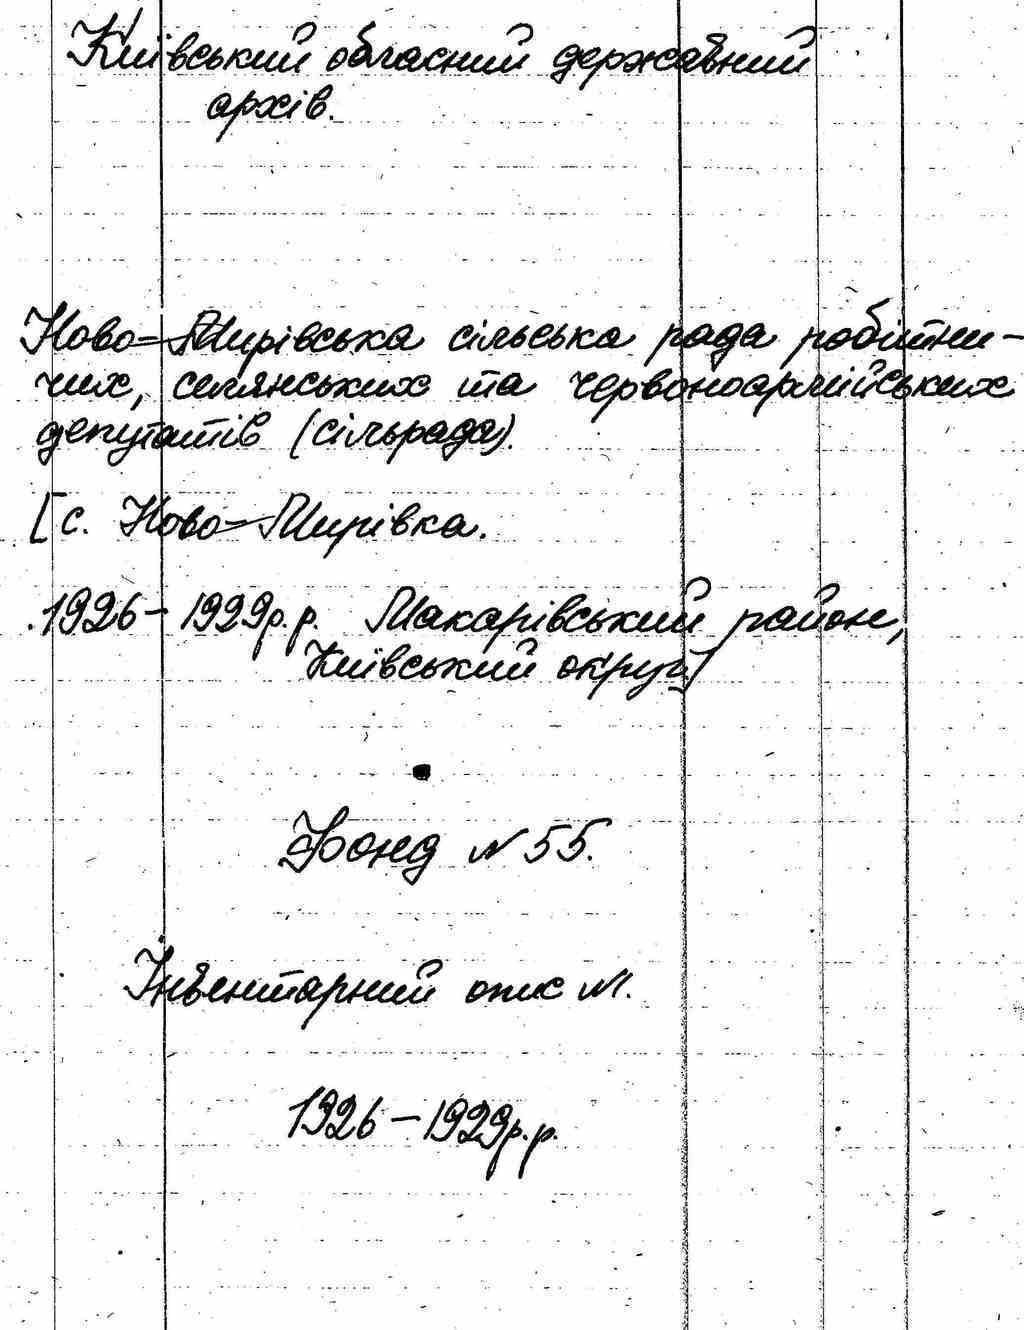 Київський обласний державний
архів.
Ново-Мирівська сільська рада робітни-
чих, селянських та червоноармійських
депутатів (сільрада).
[с. Ново-Мирівка.
1926-1929р.р. Макарівський район,
Київський округ]
Фонд № 55.
Інвентарний опис №1.
1926-1929р.р.